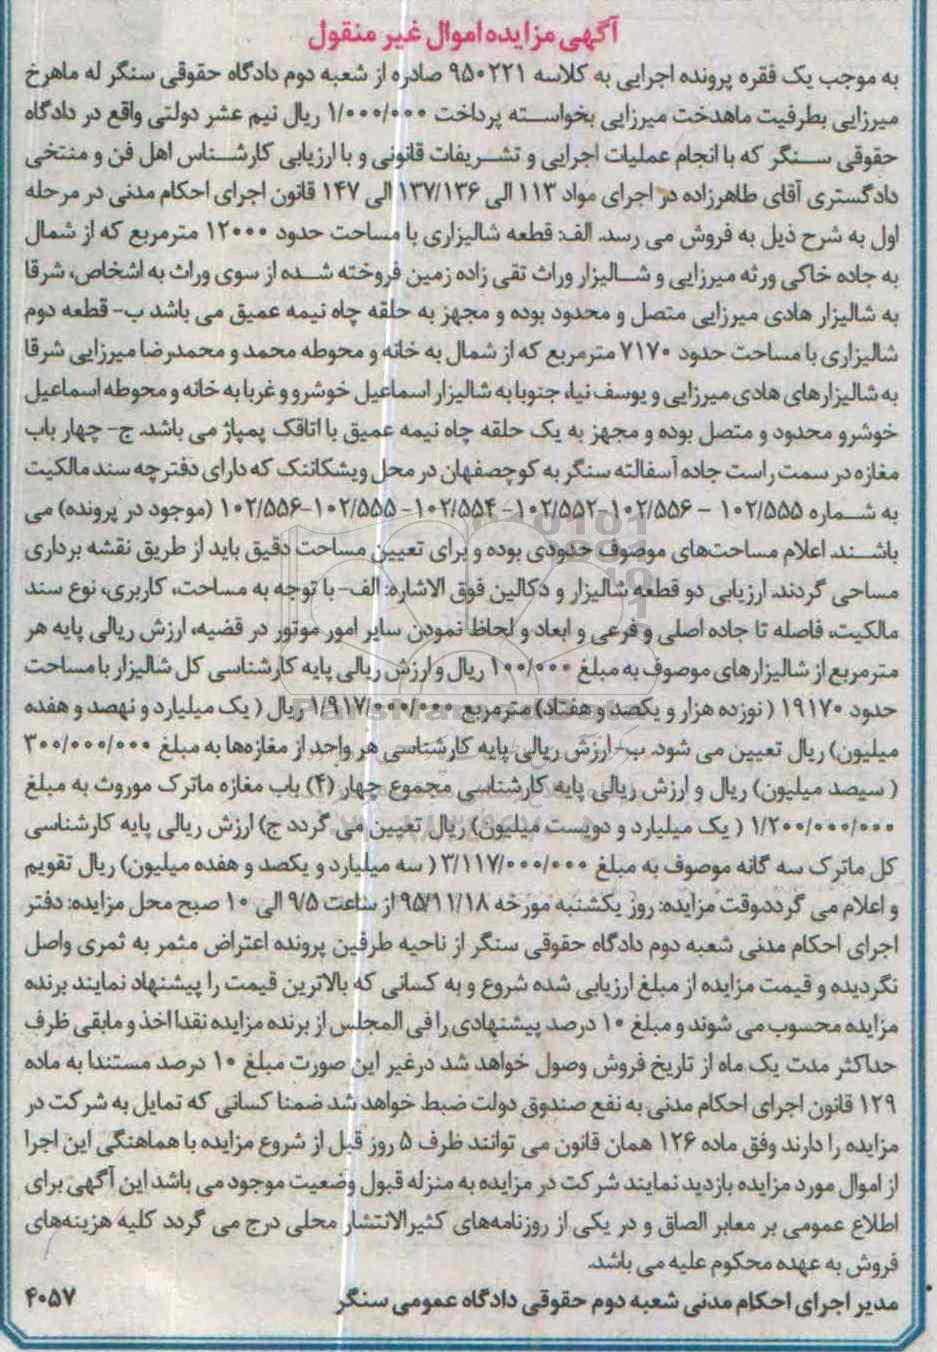 آگهی مزایده اموال غیر منقول
به موجب یک فقره پرونده اجرایی به کلاسه ۹۵۰۲۲۱ صادره از شعبه دوم دادگاه حقوقی سنگر له ماهرخ
میرزایی بطرفیت ماهدخت میرزایی بخواسته پرداخت ۱/۰۰۰/۰۰۰ ریال نیم عشر دولتی واقع در دادگاه
حقوقی سنگر که با انجام عملیات اجرایی و تشریفات قانونی و با ارزیابی کارشناس اهل فن و منتخی
دادگستری آقای طاهرزاده در اجرای مواد ۱۱۳ الی ۱۳۷/۱۳۶ الی ۱۴۷ قانون اجرای احکام مدنی در مرحله
اول به شرح ذیل به فروش می رسد. الف: قطعه شالیزاری با مساحت حدود ۱۲۰۰۰ مترمربع که از شمال
به جاده خاکی ورثه میرزایی و شالیزار وراث تقی زاده زمین فروخته شده از سوی وراث به اشخاص، شرقا
به شالیزار هادی میرزایی متصل و محدود بوده و مجهز به حلقه چاه نیمه عمیق می باشد ب- قطعه دوم
شالیزاری با مساحت حدود ۷۱۷۰ مترمربع که از شمال به خانه و محوطه محمد و محمدرضا میرزایی شرقا
به شالیزارهای هادی میرزایی و یوسف نیا، جنوبا به شالیزار اسماعیل خوشرو و غربا به خانه و محوطه اسماعیل
خوشرو محدود و متصل بوده و مجهز به یک حلقه چاه نیمه عمیق با اتاقک پمپاژ می باشد. ج- چهار باب
مغازه در سمت راست جاده آسفالته سنگر به کوچصفهان در محل ویشکاننک که دارای دفترچه سند مالکیت
به شماره ۱۰۲/۵۵۵ - ۱۰۲/۵۵۶-۱۰۲/۵۵۲- ۱۰۲/۵۵۴- ۱۰۲/۵۵۵-۱۰۲/۵۵۶ (موجود در پرونده) می
باشند. اعلام مساحت‌های موصوف حدودی بوده و برای تعیین مساحت دقیق باید از طریق نقشه برداری
مساحی گردند. ارزیابی دو قطعه شالیزار و دکالین فوق الاشاره: الف- با توجه به مساحت، کاربری، نوع سند
مالکیت، فاصله تا جاده اصلی و فرعی و ابعاد و لحاظ نمودن سایر امور موتور در قضیه، ارزش ریالی پایه هر
مترمربع از شالیزارهای موصوف به مبلغ ۱۰۰/۰۰۰ ریال و ارزش ریالی پایه کارشناسی کل شالیزار با مساحت
حدود ۱۹۱۷۰ ( نوزده هزار و یکصد و هفتاد) مترمربع ۱/۹۱۷/۰۰۰/۰۰۰ ریال ( یک میلیارد و نهصد و هفده
میلیون) ریال تعیین می شود. ب- ارزش ریالی پایه کارشناسی هر واحد از مغازه‌ها به مبلغ ۳۰۰/۰۰۰/۰۰۰
( سیصد میلیون) ریال و ارزش ریالی پایه کارشناسی مجموع چهار (۴) باب مغازه ماترک موروث به مبلغ
۱/۲۰۰/۰۰۰/۰۰۰ ( یک میلیارد و دویست میلیون) ریال تعیین می گردد ج) ارزش ریالی پایه کارشناسی
کل ماترک سه گانه موصوف به مبلغ ۳/۱۱۷/۰۰۰/۰۰۰ ( سه میلیارد و یکصد و هفده میلیون) ریال تقویم
و اعلام می گرددوقت مزایده: روز یکشنبه مورخه ۹۵/۱۱/۱۸ از ساعت ۹/۵ الی ۱۰ صبح محل مزایده: دفتر
اجرای احکام مدنی شعبه دوم دادگاه حقوقی سنگر از ناحیه طرفین پرونده اعتراض مثمر به ثمری واصل
نگردیده و قیمت مزایده از مبلغ ارزیابی شده شروع و به کسانی که بالاترین قیمت را پیشنهاد نمایند برنده
مزایده محسوب می شوند و مبلغ ۱۰ درصد پیشنهادی را فی المجلس از برنده مزایده نقدا اخذ و مابقی ظرف
حداکثر مدت یک ماه از تاریخ فروش وصول خواهد شد درغیر این صورت مبلغ ۱۰ درصد مستندا به ماده
۱۲۹ قانون اجرای احکام مدنی به نفع صندوق دولت ضبط خواهد شد ضمنا کسانی که تمایل به شرکت در
مزایده را دارند وفق ماده ۱۲۶ همان قانون می توانند ظرف ۵ روز قبل از شروع مزایده با هماهنگی این اجرا
از اموال مورد مزایده بازدید نمایند شرکت در مزایده به منزله قبول وضعیت موجود می باشد این آگهی برای
اطلاع عمومی بر معابر الصاق و در یکی از روزنامه‌های کثیرالانتشار محلی درج می گردد کلیه هزینه‌های
فروش به عهده محکوم علیه می باشد.
مدیر اجرای احکام مدنی شعبه دوم حقوقی دادگاه عمومی سنگر ۴۰۵۷